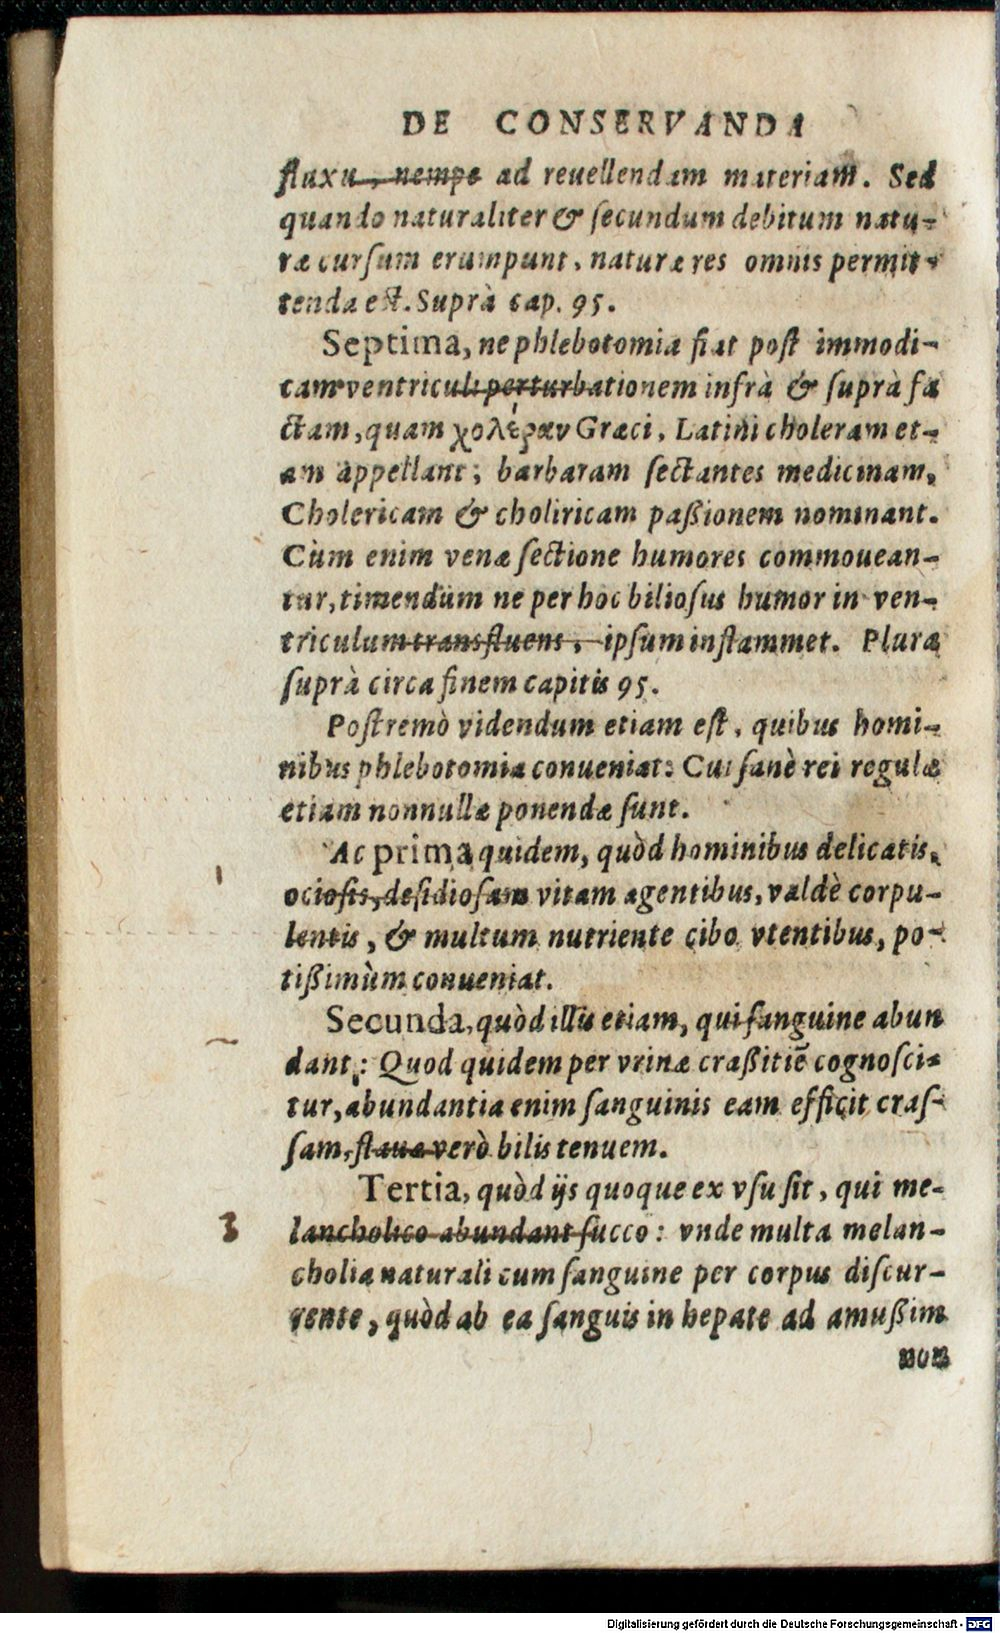 DE CONSERVANDA
fluxu, nempe ad reuellendam materiam. Sed
quando naturaliter & ſecundum debitum natu-
ræ curſum erumpunt, naturæ res omnis permit-
tenda est. Suprà cap. 95.
Septima, ne phlebotomia fiat poſt immodi-
cam ventriculi perturbationem infrà & ſuprà fa
ctam, quam χολέραν Græci, Latini choleram et-
am appellant; barbaram ſectantes medicinam,
Cholericam & choliricam paßionem nominant.
Cùm enim venæ ſectione humores commouean-
tur, timendum ne per hoc bilioſus humor in ven-
triculum transfluens, ipſum inflammet. Plura
ſuprà circa finem capitis 95.
Poſtremò videndum etiam eſt, quibus homi-
nibus phlebotomia conueniat: Cui ſanè rei regulæ
etiam nonnullæ ponendæ ſunt.
Ac prima quidem, quòd hominibus delicatis,
ocioſis, deſidioſam vitam agentibus, valdè corpu-
lentis, & multum nutriente cibo vtentibus, po-
tißimùm conueniat.
Secunda, quòd illis etiam, qui ſanguine abun
dant: Quod quidem per vrinæ craßitiē cognoſci-
tur, abundantia enim ſanguinis eam efficit craſ-
ſam, flaua verò bilis tenuem.
Tertia, quòd ijs quoque ex vſu ſit, qui me-
3
lancholico abundant ſucco: vnde multa melan-
cholia naturali cum ſanguine per corpus diſcur-
rente, quòd ab ea ſanguis in hepate ad amußim
non
Digitalisierung gefördert durch die Deutsche Forschungsgemeinschaft - DFG